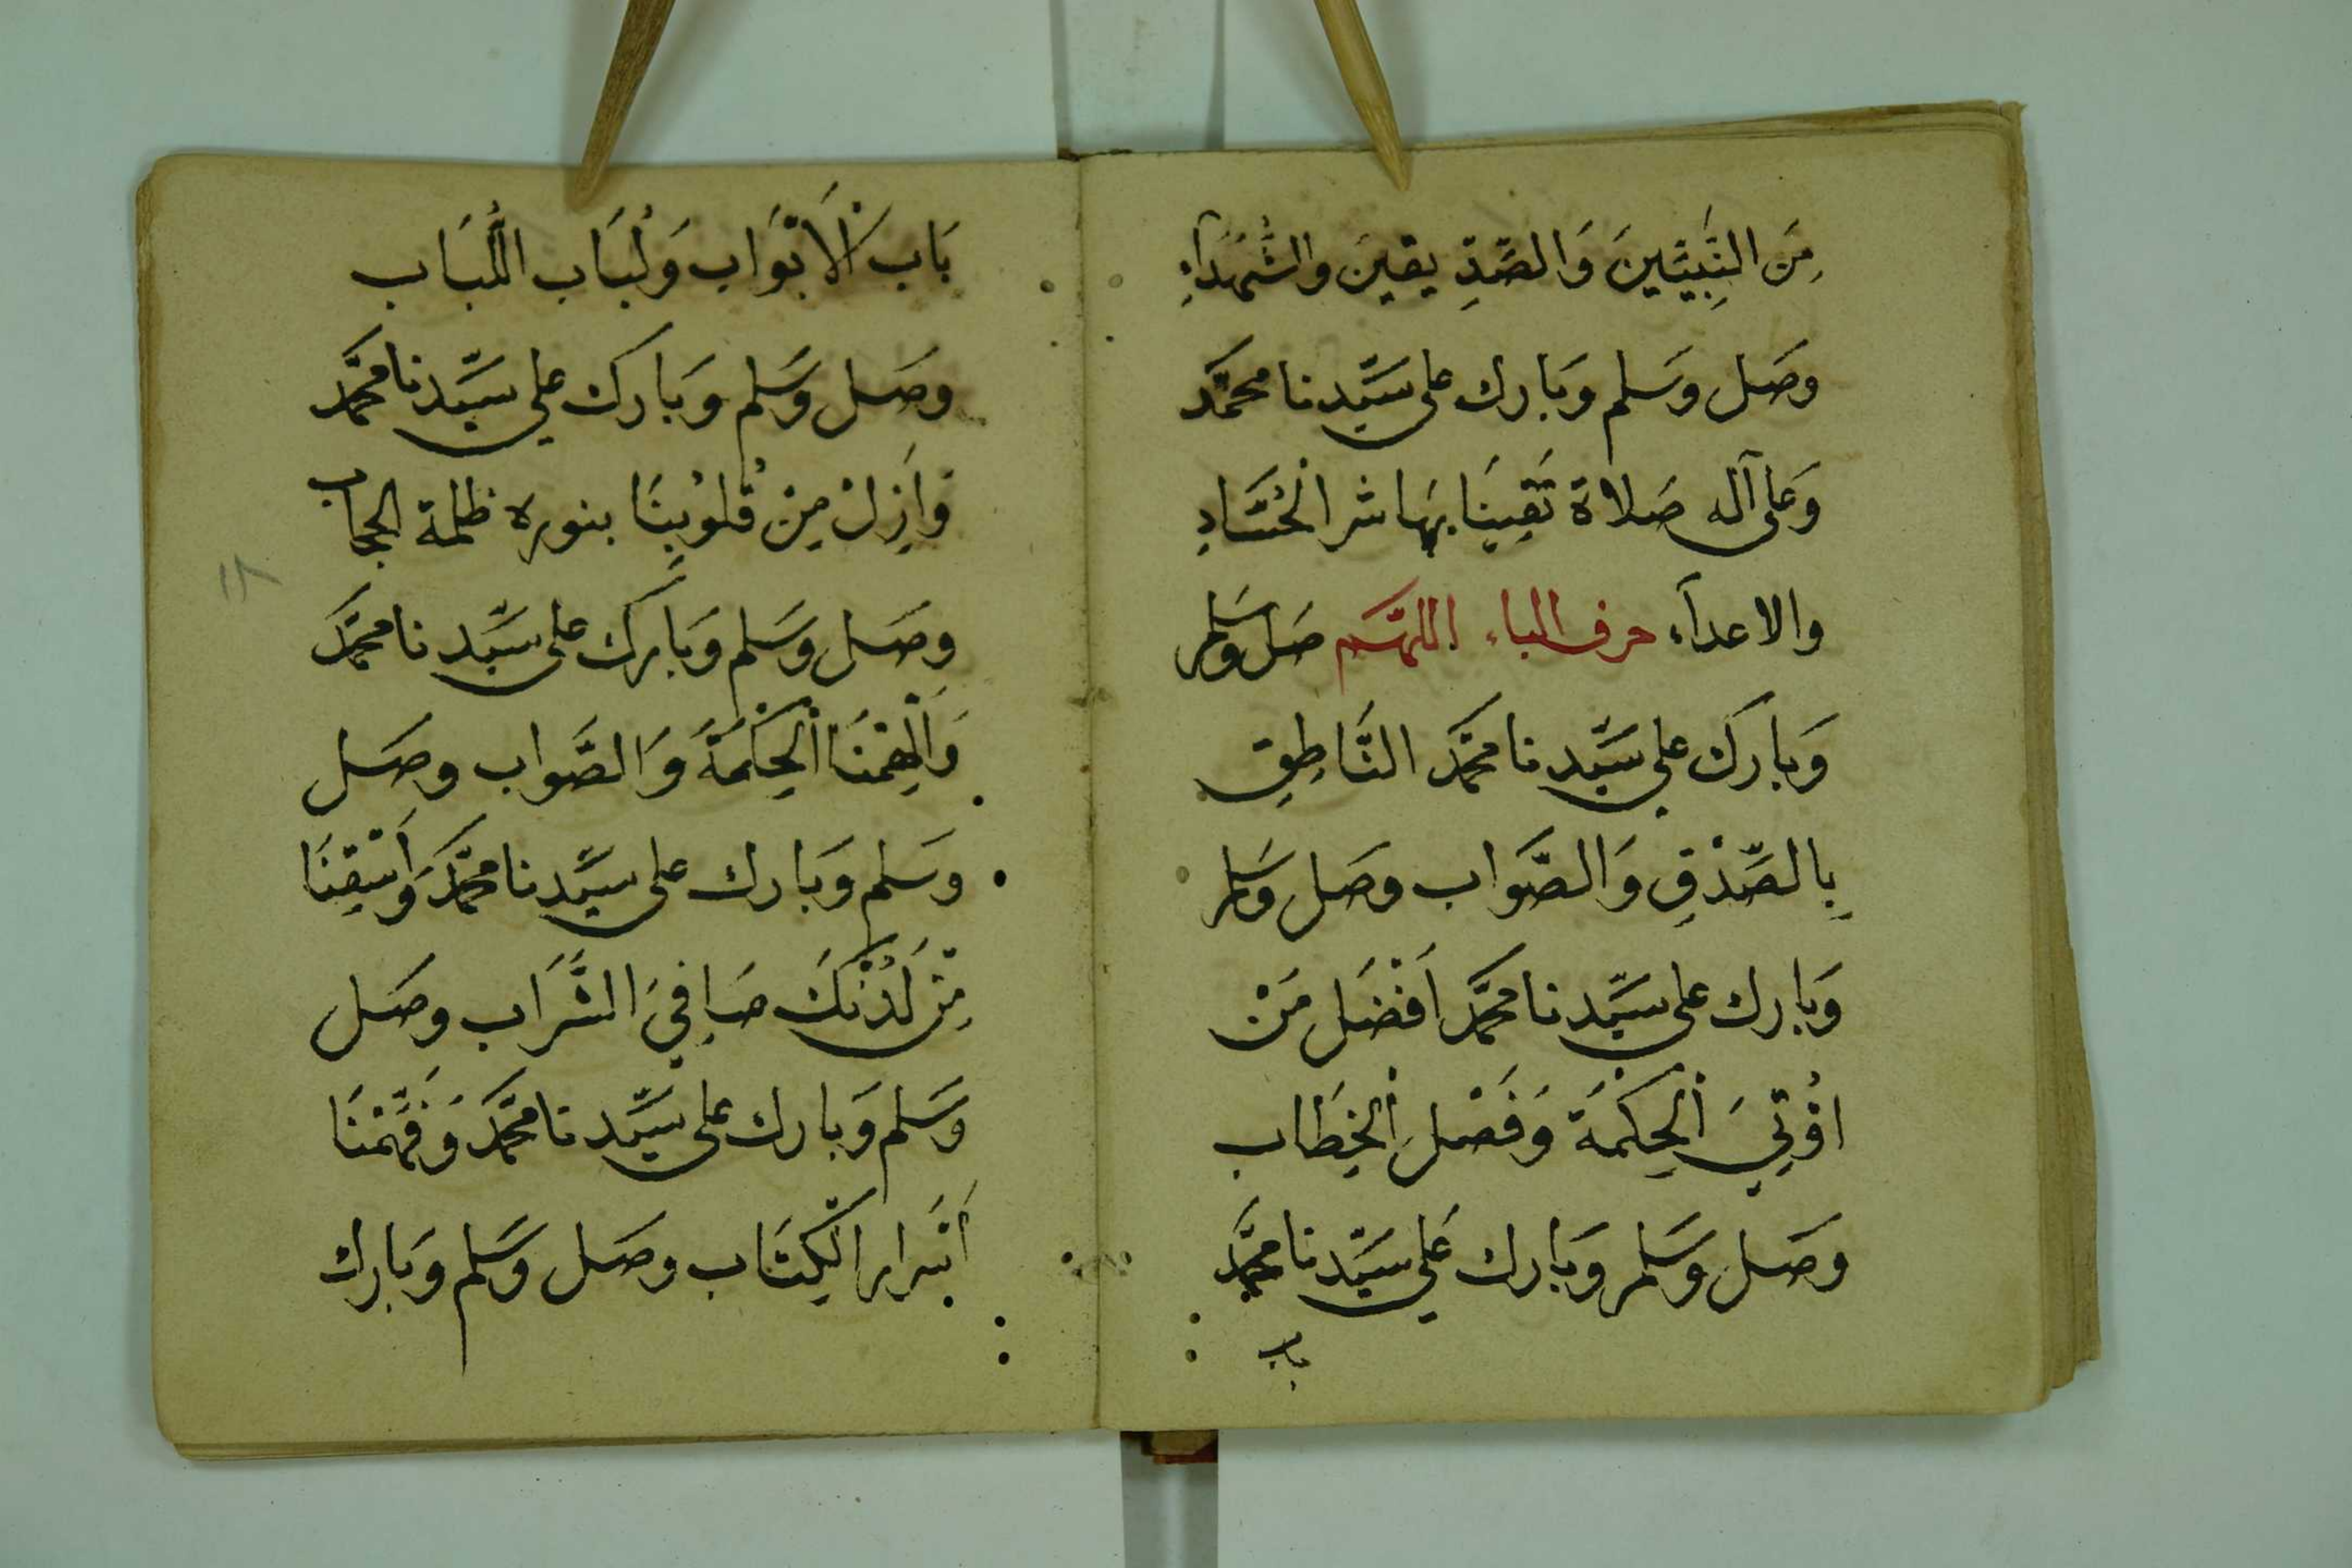 مِنَ النَّبِيِّينَ وَالصِّدِّيقِينَ وَالشُّهَدَآءِ
وصَل وسَلم وَبَارك على سَيِّدنا محمَّد
وَعلى آله صَلاة تَقِينَا بِهَا شر الْحُسَّادِ
والاعدآء حرف الباء اللهُمَّ صَل وسَلم
وَبارَك علي سَيِّدنا محَمَّد النَّاطِقِ
بِالصِّدْقِ وَالصَّوَاب وصَل وسَلم
وَبارك على سَيِّدنا محَمَّد اَفْضَل مَنْ
اُوْتِيَ اْلحِكمَة وَفَصْلَ اْلخِطَاب
وصَل وسَلم وَبَارك عَلي سَيِّدنا محَمَّد
باب
بَاب الْاَبْوَاب وَلُبَاب اللُّبَاب
وصَل وسَلم وَبَارَك علي سَيِّدنا محَمَّد
وَاَزِلْ مِنْ قُلُوْبِنَا بنوره ظلمة الحجاب
وصَل وسَلم وَبَارَك على سَيِّدنا محَمَّد
وَاَلْهِمْنَا اْلحِكْمَةَ وَالصَّوَاب وصَل
وسَلم وَبَارك على سَيِّدنا محَمَّد وَاَسْقِنَا
مِنْ لَدُنْكَ صَافِيَ الشَّرَاب وصَل
وسَلم وَبَارك على سَيِّدنا محَمَّد وَفَهِّمْنَا
اَسْرَار الْكِتَاب وصَل وسَلم وَبَارك